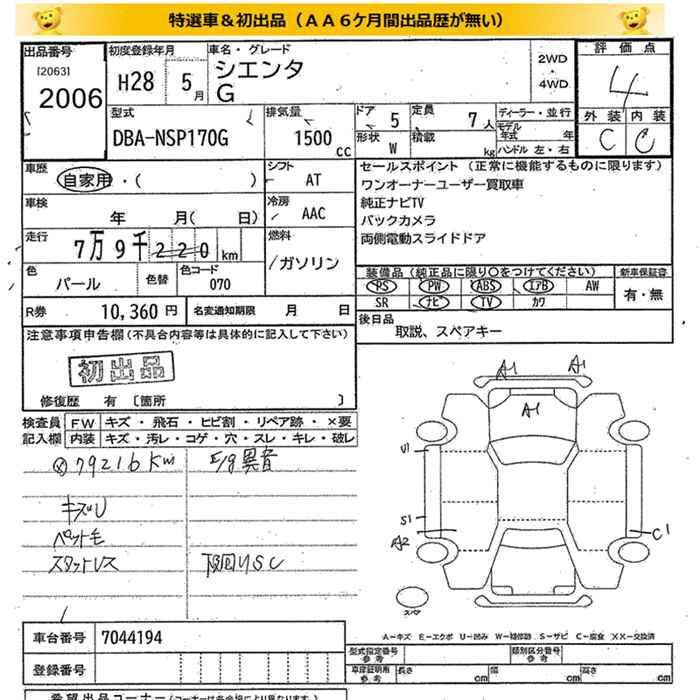 特選車＆初出品（ＡＡ６ケ月間出品歴が無い）
出品番号
[2063]
2006
初度登録年月
H28 5 月
車名・グレード
シエンタ
G
2WD
4WD
評価点
4
外装 内装
C C
型式
DBA-NSP170G
排気量
1500 cc
ドア 5
定員 7人
形状 W
積載 kg
ディーラー・並行
モデル年式 年
ハンドル 左・右
車歴
自家用・( )
シフト
AT
車検
年 月( 日)
冷房
AAC
走行
7万9千220km
燃料
ガソリン
色
パール
色替
色コード
070
R券 10,360 円
名変通知期限 月 日
セールスポイント（正常に機能するものに限ります）
ワンオーナーユーザー買取車
純正ナビTV
バックカメラ
両側電動スライドドア
装備品（純正品に限り○をつけてください）
新車保証書
PS PW ABS エアB AW
SR ナビ TV カワ
有・無
後日品
取説、スペアキー
注意事項申告欄(不具合内容等は具体的に記入して下さい)
初出品
修復歴 有〔箇所 〕
検査員記入欄
FW キズ・飛石・ヒビ割・リペア跡・×要
内装 キズ・汚レ・コゲ・穴・スレ・キレ・破レ
79216Km
E/g異音
キズU
ペット毛
スタットレス
下回りSC
A1
A1
A1
U1
S1
A2
C1
スペア
A－キズ E－エクボ U－凹み W－補修跡 S－サビ C－腐食 XX－交換済
車台番号 7044194
登録番号
型式指定番号 参考
類別区分番号 参考
車庫証明用 参考
長さ cm
幅 cm
高さ cm
希望出品コーナー